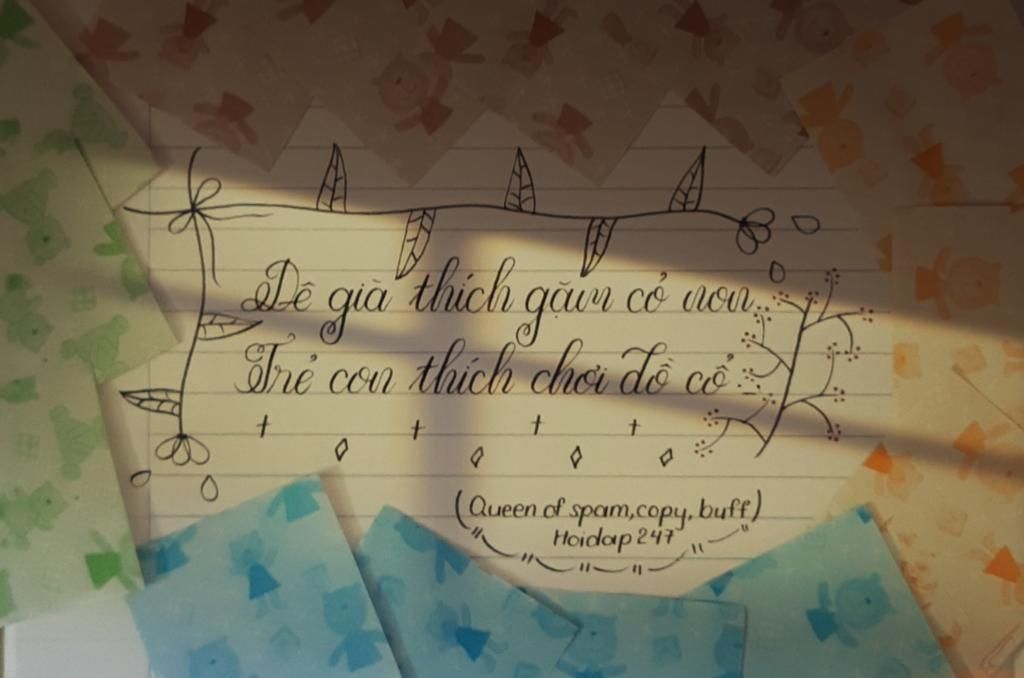 Dê già thích gặm cỏ non
Trẻ con thích chơi đồ cổ
(Queen of spam,copy, buff)
Hoidap 247